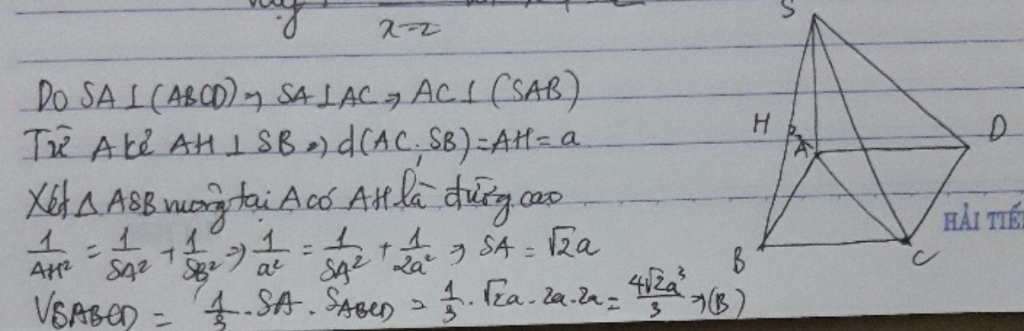 x=z
Do SA⊥(ABCD) ⇒ SA⊥AC ⇒ AC⊥(SAB)
Từ A kẻ AH⊥SB ⇒ d(AC;SB)=AH=a
Xét Δ ASB vuông tại A có AH là đường cao
1/AH² = 1/SA² + 1/SB² ⇒ 1/a² = 1/SA² + 1/2a² ⇒ SA = √2a
VSABCD = 1/3 . SA . SABCD = 1/3 . √2a . 2a . 2a = 4√2a³/3 ⇒ (B)
S
H
A
D
B
C
HẢI TIẾ